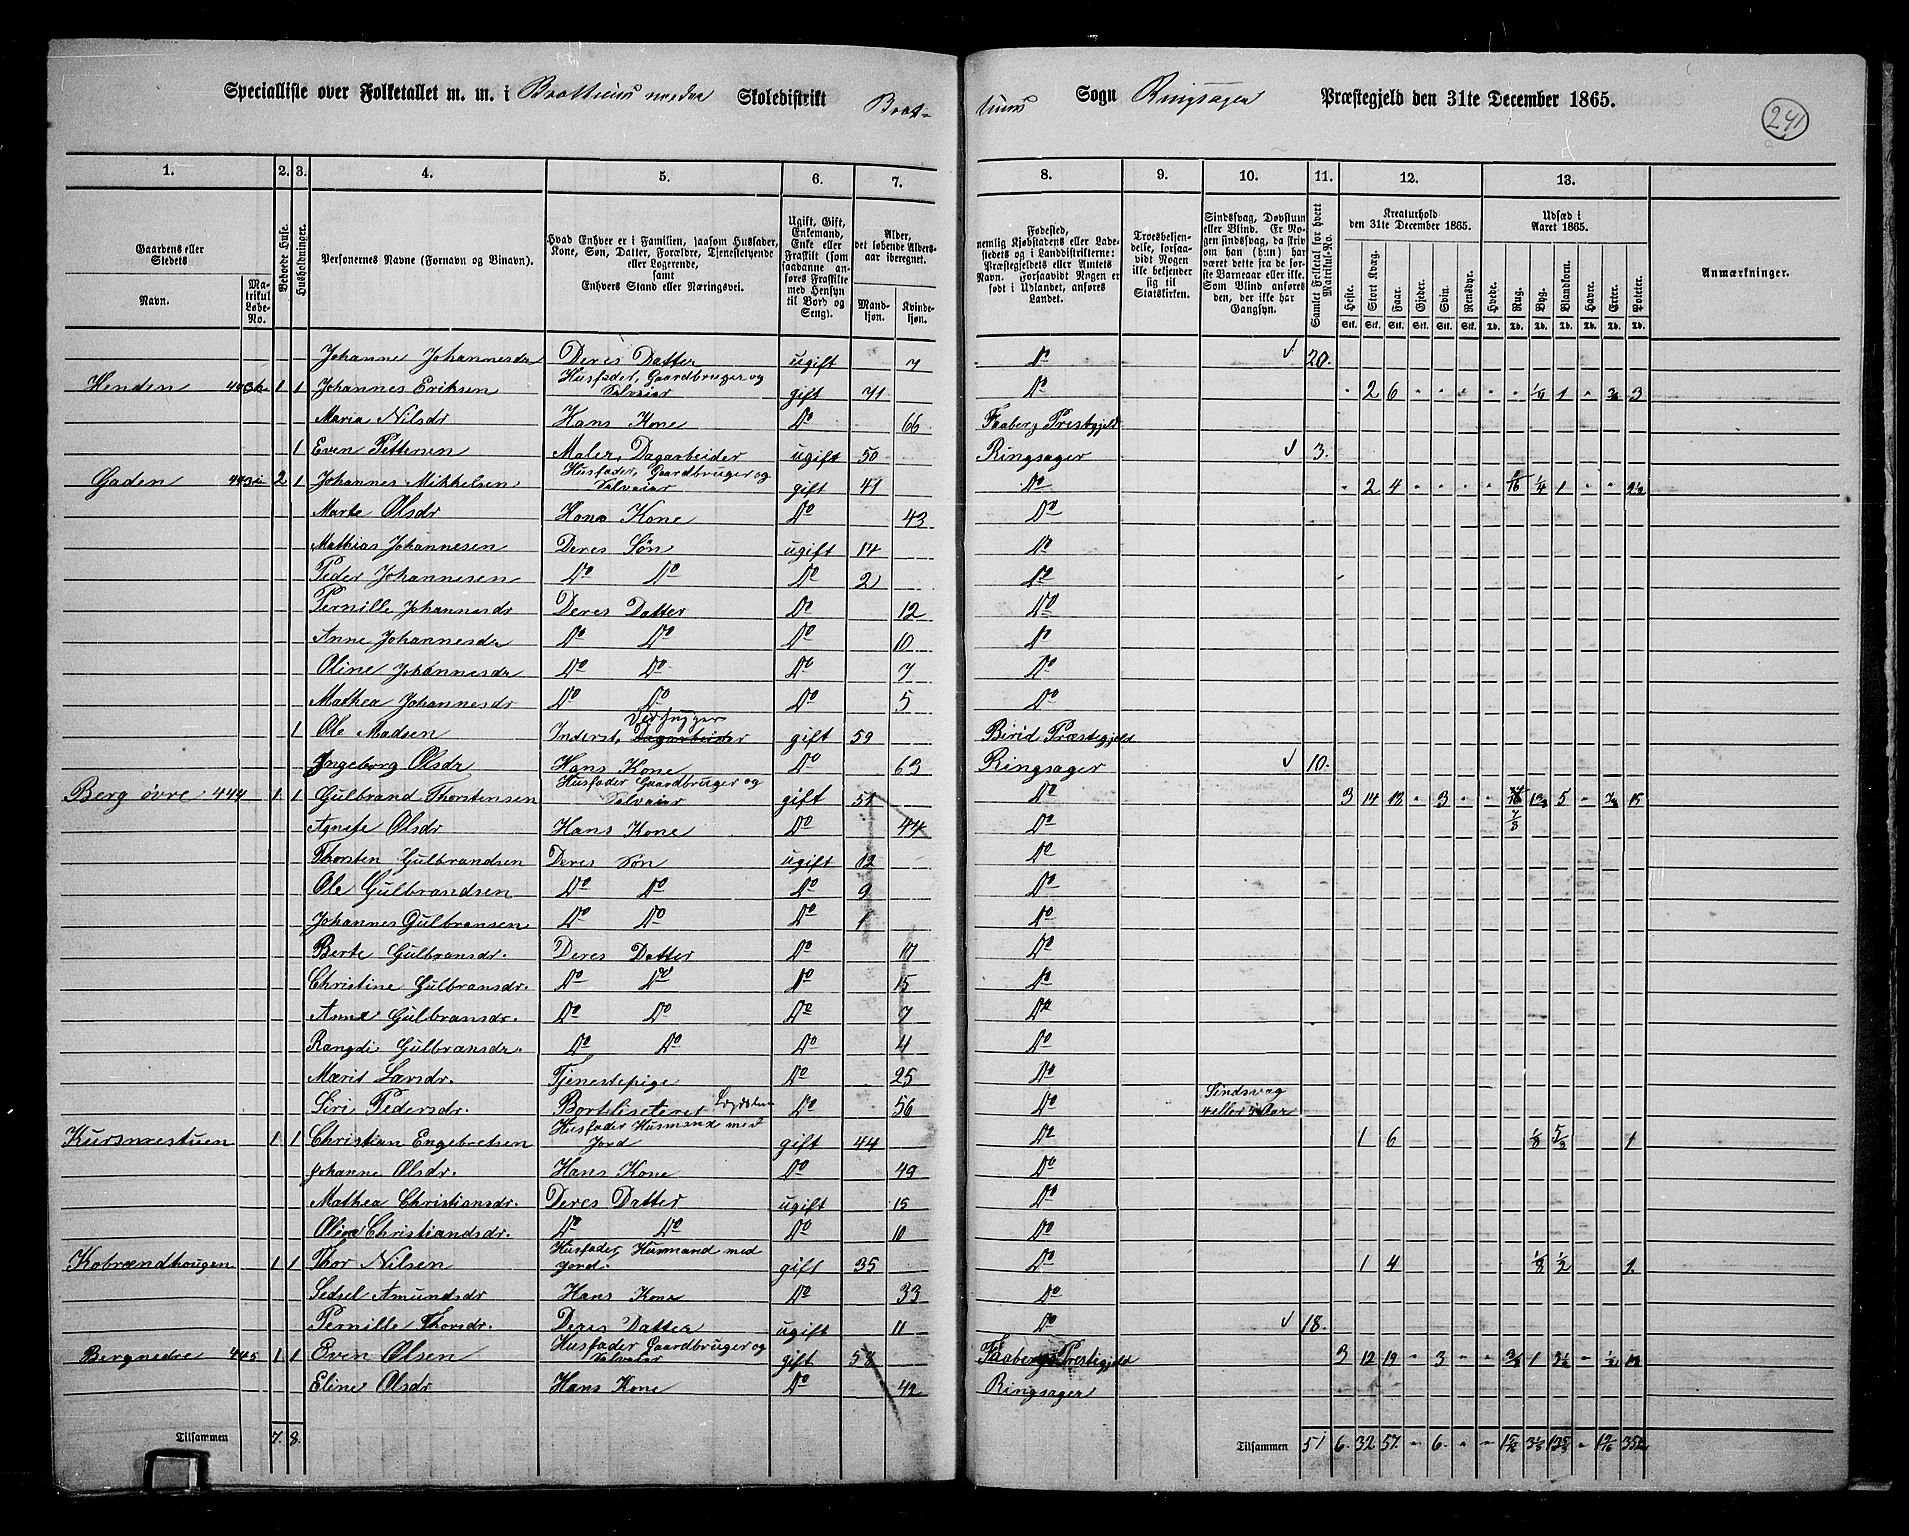 Specialliste over Folketallet m. m. i Brottums nedre Skoledistrikt Brot-
tums Sogn Ringsager Præstegjeld den 31te December 1865.
241
1. 2. 3. 4. 5. 6. 7. 8. 9. 10. 11. 12. 13.
Gaardens eller Stedets
Navn.
Matrikul Løbe-No.
Beboede Huse.
Husholdninger.
Personernes Navne (Fornavn og Binavn).
Hvad Enhver er i Familien, saasom Husfader, Kone, Søn, Datter, Forældre, Tjenestetyende eller Logerende,
samt
Enhvers Stand eller Næringsvei.
Ugift, Gift, Enkemand, Enke eller Fraskilt (som saadanne anføres Fraskilte med Hensyn til Bord og Seng).
Alder, det løbende Aldersaar iberegnet.
Mandkjøn.
Kvindekjøn.
Fødested,
nemlig Kjøbstadens eller Ladestedets og i Landdistrikterne: Præstegjeldets eller Amtets Navn. Forsaavidt Nogen er født i Udlandet, anføres Landet.
Troesbekjendelse, forsaavidt Nogen ikke bekjender sig til Statskirken.
Sindssvag, Døvstum eller Blind. Er Nogen sindssvag, da skrives om han (hun) har været dette fra de første Barneaar eller ikke. Som Blind anføres den, der ikke har Gangsyn.
Samlet Folketal for hvert Matrikul-No.
Kreaturhold den 31te December 1865.
Heste. Stort Kvæg. Faar. Gjeder. Svin. Rensdyr.
Udsæd i Aaret 1865.
Hvede. Rug. Byg. Blandkorn. Havre. Erter. Poteter.
Anmærkninger.
Johanne Johannesdr Deres Datter ugift 7 Do 20.
Henden 443 1 1 Johannes Eriksen Husfader, Gaardbruger og Selveier gift 71 Do 2 6 1/4 1 3
Maria Nilsdr Hans Kone Do 66 Faaberg Prestegjeld
1 Even Pettersen Maler, Dagarbeider ugift 50 Ringsager 3.
Gaden 443 2 1 Johannes Mikkelsen Husfader, Gaardbruger og Selveier gift 41 Do 2 4 1/4 1
Marte Olsdr Hans Kone Do 43 Do
Mathias Johannesen Deres Søn ugift 14 Do
Peder Johannesen Do Do Do 2 Do
Pernille Johannesdr Deres Datter Do 12 Do
Anne Johannesdr Do Do Do 10 Do
Oline Johannesdr Do Do Do 7 Do
Mathea Johannesdr Do Do Do 5 Do
1 Ole Madsen Inderst, Vedhugger Dagarbeider gift 59 Birid Præstegjeld
Ingeborg Olsdr Hans Kone Do 63 Ringsager 10.
Berg øvre 444 1 1 Gulbrand Thorstensen Husfader Gaardbruger og Selveier gift 51 Do 3 14 13 3 5 15
Agnete Olsdr Hans Kone Do 44 Do 7/8
Thorsten Gulbrandsen Deres Søn ugift 12 Do
Ole Gulbrandsen Do Do Do 9 Do
Johannes Gulbransen Do Do Do 1 Do
Berte Gulbransdr. Deres Datter Do 17 Do
Christine Gulbransdr. Do Do Do 15 Do
Anne Gulbransdr. Do Do Do 7 Do
Rangdi Gulbransdr. Do Do Do 4 Do
Marit Larsdr. Tjenestepige Do 25 Do
Siri Pedersdr. Bortliseteret Do 56 Do Sindsvag
Kursmestuen 1 1 Christian Engebretsen Husfader Husmand med Jord gift 44 Do 1 6 1/8 5/8 1
Johanne Olsdr. Hans Kone Do 49 Do
Mathea Christiansdr. Deres Datter ugift 15 Do
Oline Christiandsdr. Do Do Do 10 Do
Kobrændhougen 1 1 Thor Nilsen Husfader, Husmand med Jord. gift 35 Do 1 4 1/2 1.
Sedsel Amundsdr Hans Kone Do 33 Do
Pernille Thorsdr. Deres Datter ugift 11 Do 18.
Berg nedre 445 1 1 Even Olsen Husfader Gaardbruger og Selveier gift 58 Faabergs Prestegjeld 3 12 19 3 1
Eline Olsdr Hans Kone Do 42 Ringsager
Tilsammen 7. 8.
Tilsammen 51 6. 32 57. 6.